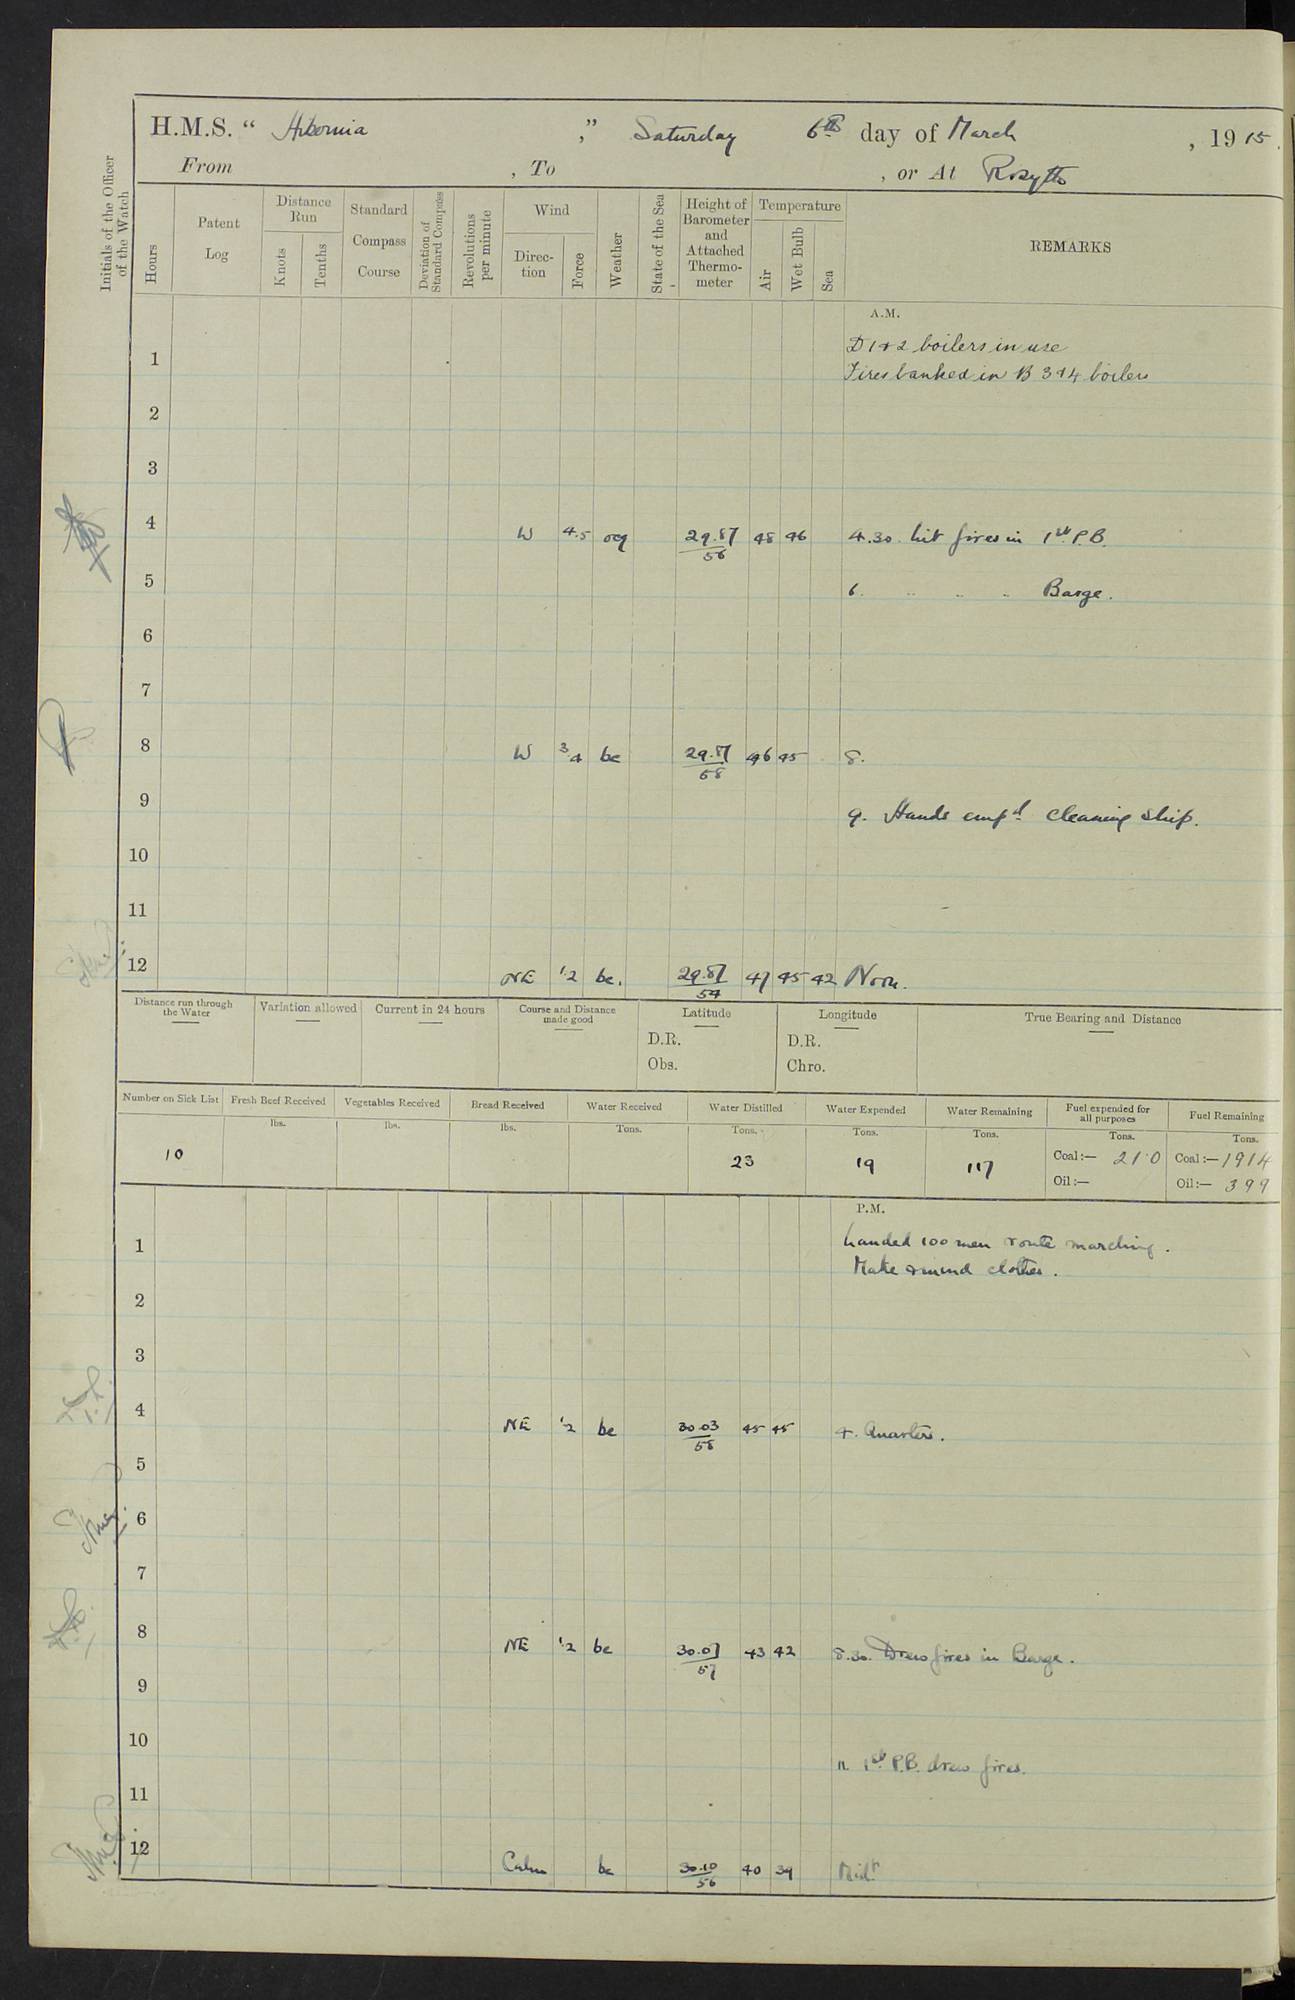 H.M.S. “ Hibernia ,” Saturday 6th day of March , 1915.
From , To , or At Rosyth
Initials of the Officer of the Watch
Hours
Patent Log
Distance Run
Knots
Tenths
Standard Compass Course
Deviation of Standard Compass
Revolutions per minute
Wind
Direction
Force
Weather
State of the Sea
Height of Barometer and Attached Thermometer
Temperature
Air
Wet Bulb
Sea
REMARKS
A.M.
D 1 & 2 boilers in use
1
Fires banked in B 3 & 4 boilers
2
3
4 W 4.5 29.87/56 48 46 4.30. lit fires in 1st P.B.
5 6. .. .. .. Barge.
6
7
8 W 3/4 bc 29.87/58 46 45 8.
9 9. Hands empd. cleaning ship.
10
11
12 NE 1.2 bc. 29.87/54 47 45 42 Noon.
Distance run through the Water
Variation allowed
Current in 24 hours
Course and Distance made good
Latitude
D.R.
Obs.
Longitude
D.R.
Chro.
True Bearing and Distance
Number on Sick List Fresh Beef Received Vegetables Received Bread Received Water Received Water Distilled Water Expended Water Remaining Fuel expended for all purposes Fuel Remaining
lbs. lbs. lbs. Tons. Tons. Tons. Tons. Tons. Tons.
10 23 19 117 Coal:— 21.0 Coal:— 1914
Oil:— Oil:— 399
P.M.
1 Landed 100 men route marching.
Make & mend clothes.
2
3
4 NE 1.2 bc 30.03/58 45 45 4. Quarters.
5
6
7
8 NE 1.2 bc 30.07/57 43 42 8.30. Drew fires in Barge.
9
10 11. 1st P.B. drew fires.
11
12 Calm bc 30.10/56 40 39 Midt.